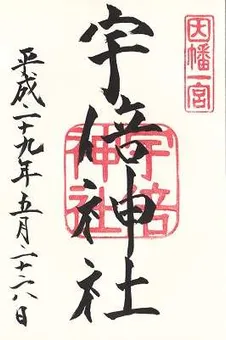 因幡一宮
宇倍神社
宇倍神社
平成二十九年五月二十八日